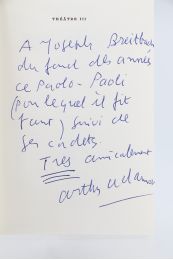 THÉÂTRE III
A Joseph Breitbach
du fond des années
ce Paolo-Paoli
(pour lequel il fit
tant) suivi de
ses cadets.
Très amicalement
Arthur Adamov